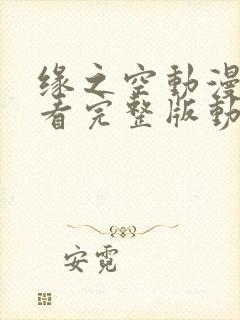 缘之空動漫
看完整版動
安霓